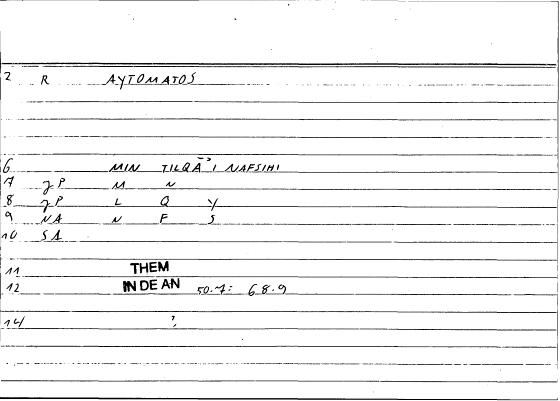 2 R AYTOMATOS
6 MIN TILQĀ'I NAFSIHI
7 gP M N
8 gP L Q Y
9 NA N F S
10 SA
11 THEM
12 IN DE AN 50.7: 68.9
14